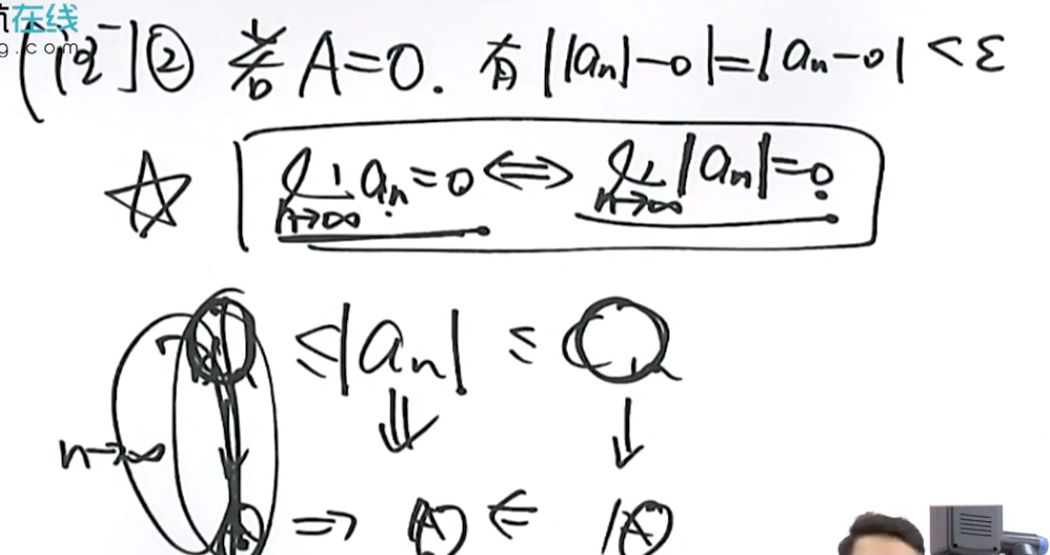 航在线
g.com
[注]② 若A=0. 有||aₙ|-0|=|aₙ-0|<ε
☆ lim n→∞ aₙ=0 ⇔ lim n→∞ |aₙ|=0
≤|aₙ|≤
n→∞
A ⇒ A ⇐ A